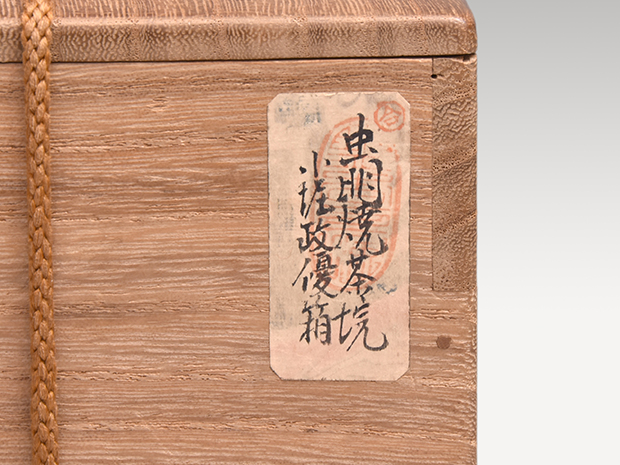 虫明焼茶垸
小堀政優箱